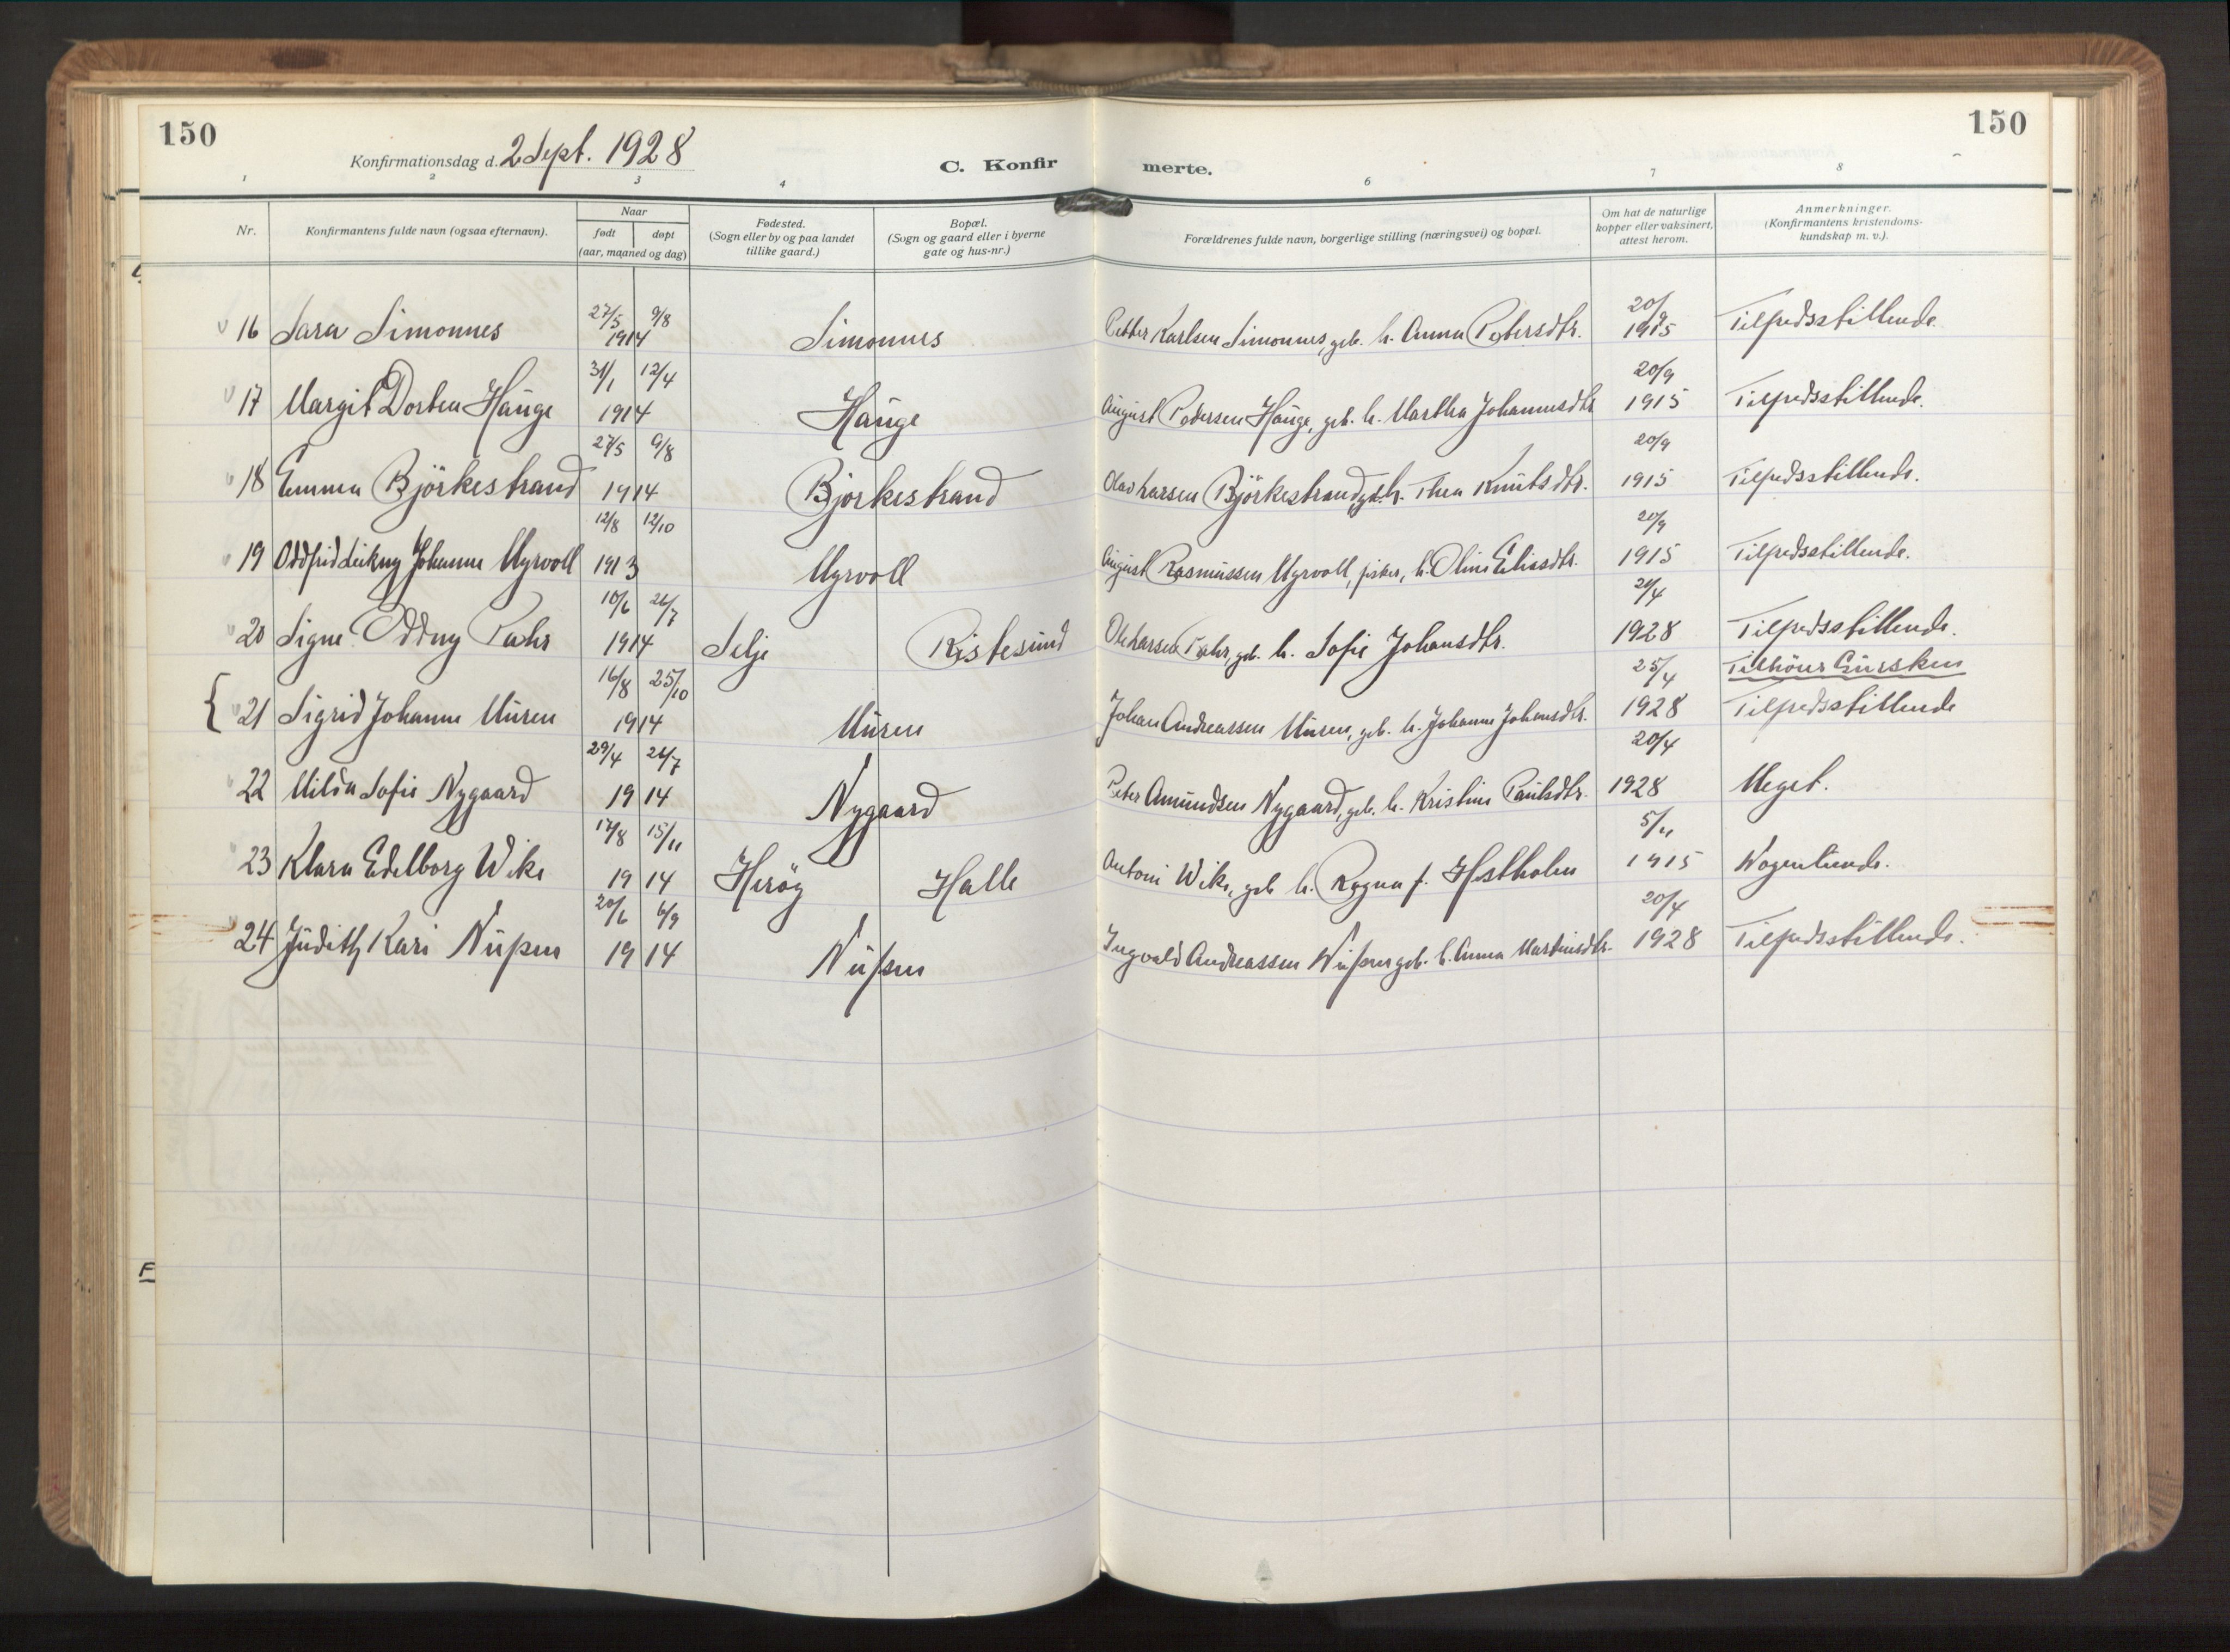 150
150
Konfirmationsdag d. 2 Sept. 1928
C. Konfir
merte.
1 2 3 4 6 7 8
Nr.
Konfirmantens fulde navn (ogsaa efternavn).
Naar
født døpt
(aar, maaned og dag)
Fødested.
(Sogn eller by og paa landet
tillike gaard.)
Bopæl.
(Sogn og gaard eller i byerne
gate og hus-nr.)
Forældrenes fulde navn, borgerlige stilling (næringsvei) og bopæl.
Om hat de naturlige
kopper eller vaksinert,
attest herom.
Anmerkninger.
(Konfirmantens kristendoms-
kundskap m. v.).
27/5 9/8 20/9
16 Sara Simonnes 1914 Simonnes Petter Karlsen Simonnes, geb. h. Anna Petersdtr. 1915 Tilfredsstillende.
31/1 12/4 20/9
17 Margit Dorten Hauge 1914 Hauge August Pedersen Hauge, geb. h. Martha Johannesdtr 1915 Tilfredsstillende.
27/5 9/8 20/9
18 Emma Björkestrand 1914 Bjorkestrand Olav Larsen Björkestrand, geb. h. Thea Knutsdtr. 1915 Tilfredsstillende.
12/8 12/10 20/9
19 Oddfrid Leikny Johanne Myrvoll 1913 Myrvoll August Rasmussen Myrvoll, fisker, h. Oline Eliasdtr. 1915 Tilfredsstillende.
10/6 26/7
20 Signe Oddny 1914 Selje Ristesund Ole Larsen geb. h. Sofie Johansdtr. 1928 Tilfredsstillende.
16/8 25/10 25/4 Tilhörer Gursken
21 Sigrid Johanne Muren 1914 Muren Johan Andreassen Muren, geb. h. Johanne Johansdtr. 1928 Tilfredsstillende
29/4 26/7 20/4
22 Milda Sofie Nygaard 1914 Nygaard Peter Amundsen Nygaard, geb. h. Kristine Paulsdtr. 1928 Meget.
17/8 15/11 5/11
23 Klara Edelborg Wike 1914 Heröy Halle Antoni Wike, geb h. Ragna f. Hestholm 1915
20/6 6/9 20/4
24 Judith Kari Nupen 1914 Nupen Ingvald Andreassen Nupen geb. h. Anna Martinsdtr. 1928 Tilfredsstillende.
F